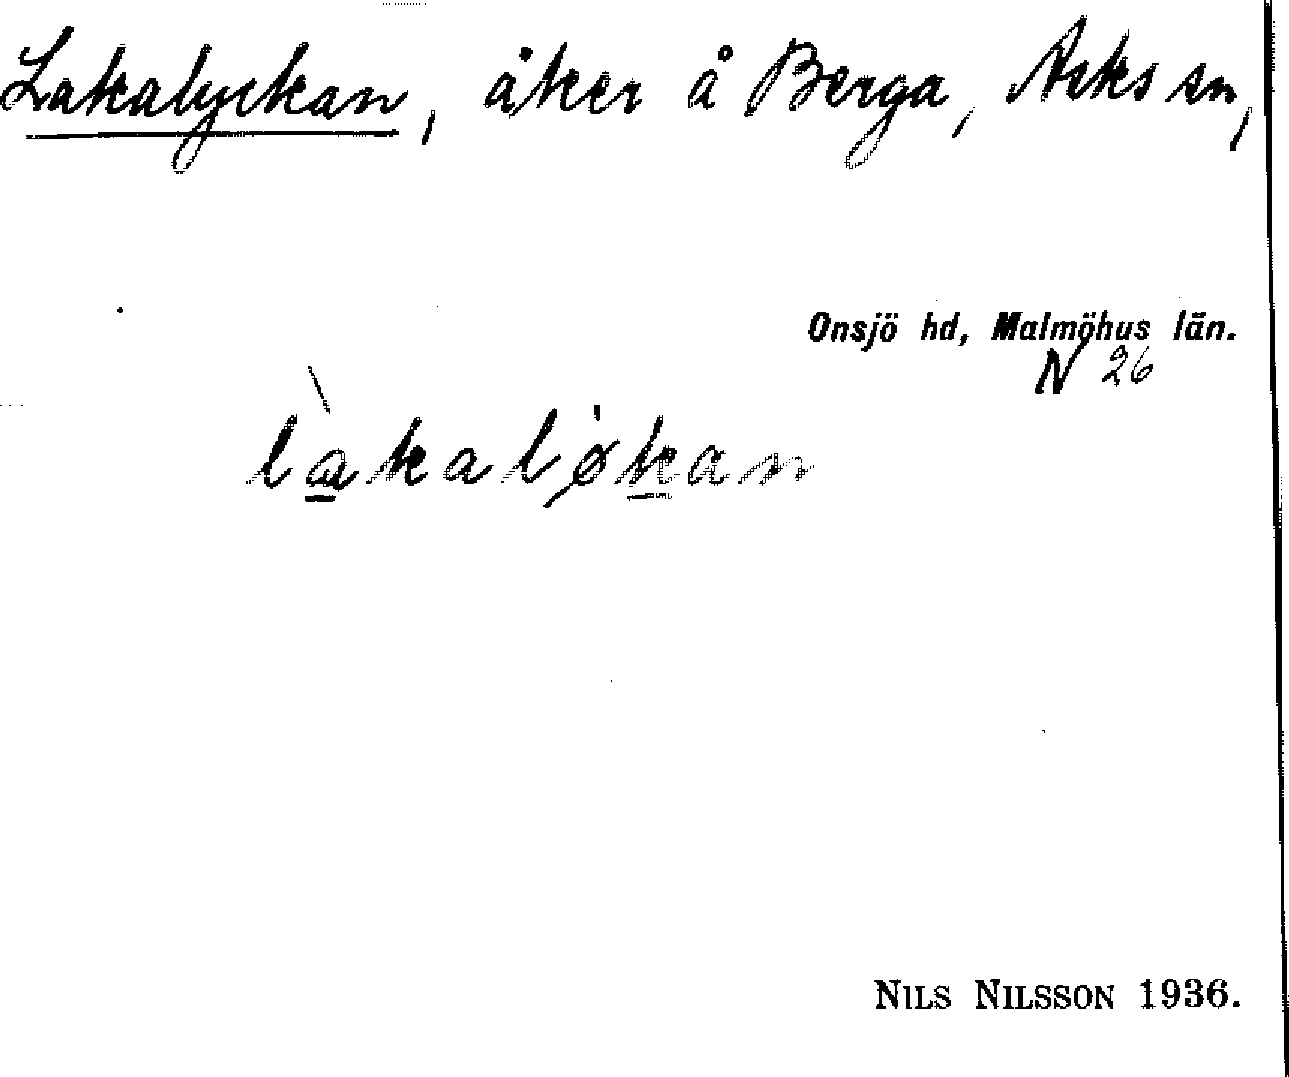 Lakalyckan, åker å Berga, Asks sn,
Onsjö hd, Malmöhus län.
N 26
làkaløkan
NILS NILSSON 1936.